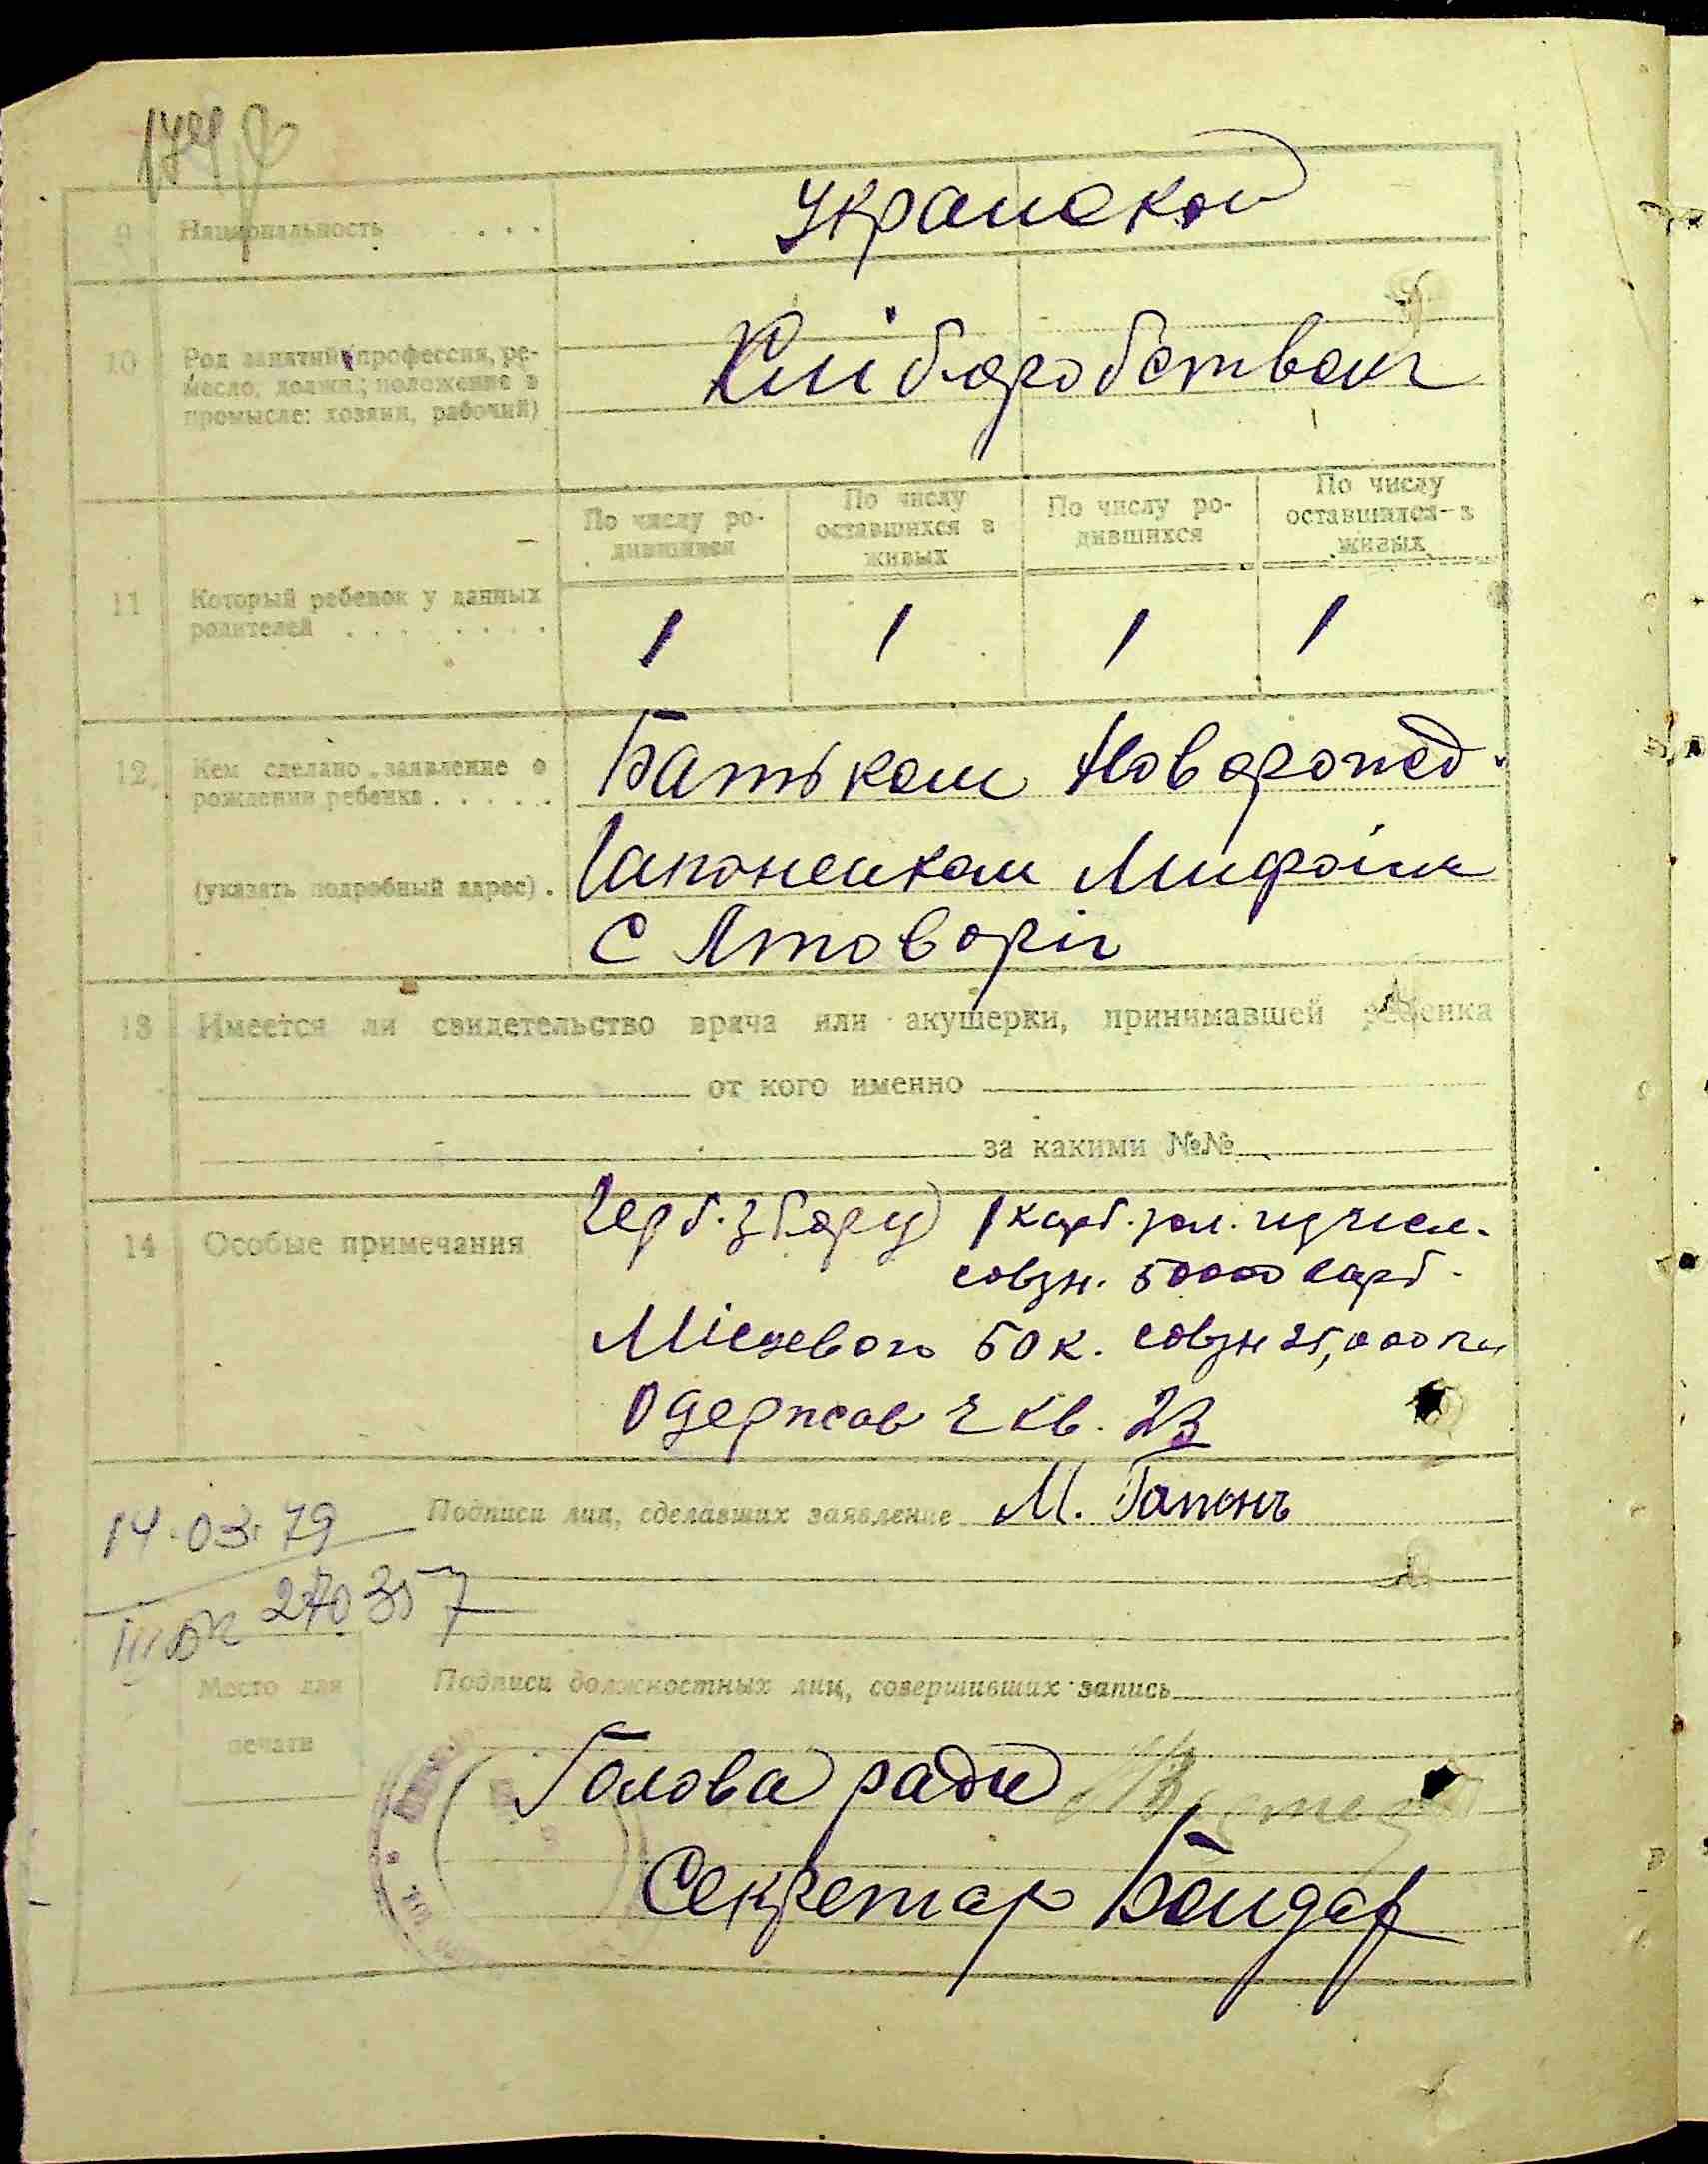 174
9 Национальность . . . Украиской
10 Род занятий (профессия, ре-
месло, должн.; положение в
промысле: хозяин, рабочий)
Хліборобством
По числу ро-
дившихся
По числу
оставшихся в
живых
По числу ро-
дившихся
По числу
оставшихся в
живых
11 Который ребенок у данных
родителей . . . . . . . .
1 1 1 1
12. Кем сделано заявление о
рождении ребенка . . . . .
Батьком Новорожед.
(указать подробный адрес) .
Гапоненком Мифоім
с Ятоворіг
13 Имеется ли свидетельство врача или акушерки, принимавшей ребенка
от кого именно
за какими №№
14 Особые примечания
Герб. збору 1 карб. зол. изчисл.
совзн. 50000 карб.
Місцевого 50 к. совзн 25,000
Одержав 2 кв. 23
Подписи лиц, сделавших заявление М. Гапонъ
14.03.79
270357
Место для
печати
Подписи должностных лиц, совершивших запись
Голова ради
Секретар Бондар